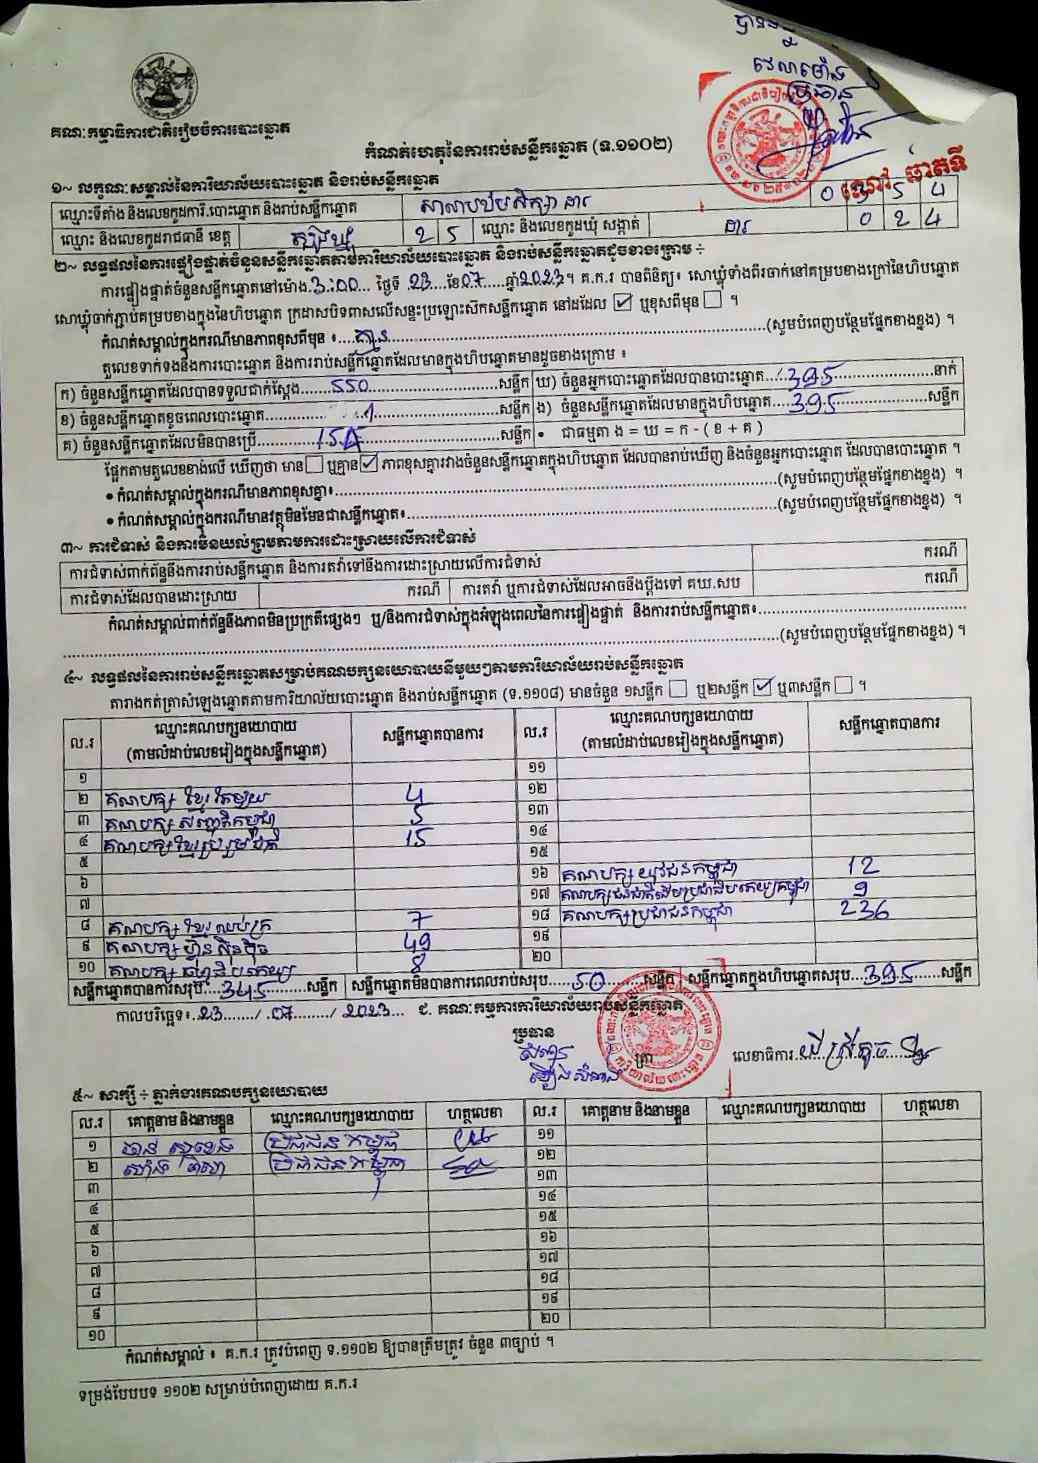 គណៈកម្មាធិការជាតិរៀបចំការបោះឆ្នោត
កំណត់ហេតុនៃការរាប់សន្លឹកឆ្នោត (ទ.១១០២)
១~ លក្ខណៈសម្គាល់នៃការិយាល័យបោះឆ្នោត និងរាប់សន្លឹកឆ្នោត
ឈ្មោះទីតាំង និងលេខកូដការិ.បោះឆ្នោត និងរាប់សន្លឹកឆ្នោត
ឈ្មោះ និងលេខកូដរាជធានី ខេត្ត ត្បូងឃ្មុំ 2 5 ឈ្មោះ និងលេខកូដឃុំ សង្កាត់ ដារ 0 2 4
២~ លទ្ធផលនៃការផ្ទៀងផ្ទាត់ចំនួនសន្លឹកឆ្នោតតាមការិយាល័យបោះឆ្នោត និងរាប់សន្លឹកឆ្នោតដូចខាងក្រោម ÷
ការផ្ទៀងផ្ទាត់ចំនួនសន្លឹកឆ្នោតនៅម៉ោង.3:00... ថ្ងៃទី 23 ខែ07 ឆ្នាំ2023។ គ.ក.រ បានពិនិត្យ៖ សោឃ្លុំទាំងពីរចាក់នៅគម្របខាងក្រៅនៃហិបឆ្នោត
សោឃ្លុំចាក់ភ្ជាប់គម្របខាងក្នុងនៃហិបឆ្នោត ក្រដាសបិទពាសលើសន្ទះប្រឡោះសិកសន្លឹកឆ្នោត នៅដដែល ☑ ឬខុសពីមុន ☐ ។
កំណត់សម្គាល់ក្នុងករណីមានភាពខុសពីមុន ៖ គ្មាន (សូមបំពេញបន្ថែមផ្នែកខាងខ្នង) ។
តួលេខទាក់ទងនឹងការបោះឆ្នោត និងការរាប់សន្លឹកឆ្នោតដែលមានក្នុងហិបឆ្នោតមានដូចខាងក្រោម ៖
ក) ចំនួនសន្លឹកឆ្នោតដែលបានទទួលជាក់ស្តែង 550 សន្លឹក ឃ) ចំនួនអ្នកបោះឆ្នោតដែលបានបោះឆ្នោត 395 នាក់
ខ) ចំនួនសន្លឹកឆ្នោតខូចពេលបោះឆ្នោត 1 សន្លឹក ង) ចំនួនសន្លឹកឆ្នោតដែលមានក្នុងហិបឆ្នោត 395 សន្លឹក
គ) ចំនួនសន្លឹកឆ្នោតដែលមិនបានប្រើ 154 សន្លឹក • ជាធម្មតា ង = ឃ = ក - ( ខ + គ )
ផ្អែកតាមតួលេខខាងលើ ឃើញថា មាន ☐ ឬគ្មាន ☑ ភាពខុសគ្នារវាងចំនួនសន្លឹកឆ្នោតក្នុងហិបឆ្នោត ដែលបានរាប់ឃើញ និងចំនួនអ្នកបោះឆ្នោត ដែលបានបោះឆ្នោត ។
• កំណត់សម្គាល់ក្នុងករណីមានភាពខុសគ្នា៖ (សូមបំពេញបន្ថែមផ្នែកខាងខ្នង) ។
• កំណត់សម្គាល់ក្នុងករណីមានវត្ថុមិនមែនជាសន្លឹកឆ្នោត៖ (សូមបំពេញបន្ថែមផ្នែកខាងខ្នង) ។
៣~ ការជំទាស់ និងការមិនយល់ព្រមតាមការដោះស្រាយលើការជំទាស់
ការជំទាស់ពាក់ព័ន្ធនឹងការរាប់សន្លឹកឆ្នោត និងការតវ៉ាទៅនឹងការដោះស្រាយលើការជំទាស់ ករណី
ការជំទាស់ដែលបានដោះស្រាយ ករណី ការតវ៉ា ឬការជំទាស់ដែលអាចនឹងប្តឹងទៅ គឃ.សប ករណី
កំណត់សម្គាល់ពាក់ព័ន្ធនឹងភាពមិនប្រក្រតីផ្សេងៗ ឬ/និងការជំទាស់ក្នុងអំឡុងពេលនៃការផ្ទៀងផ្ទាត់ និងការរាប់សន្លឹកឆ្នោត៖
(សូមបំពេញបន្ថែមផ្នែកខាងខ្នង) ។
៤~ លទ្ធផលនៃការរាប់សន្លឹកឆ្នោតសម្រាប់គណបក្សនយោបាយនីមួយៗតាមការិយាល័យរាប់សន្លឹកឆ្នោត
តារាងកត់ត្រាសំឡេងឆ្នោតតាមការិយាល័យបោះឆ្នោត និងរាប់សន្លឹកឆ្នោត (ទ.១១០៨) មានចំនួន ១សន្លឹក ☐ ឬ២សន្លឹក ☑ ឬ៣សន្លឹក ☐ ។
ល.រ ឈ្មោះគណបក្សនយោបាយ (តាមលំដាប់លេខរៀងក្នុងសន្លឹកឆ្នោត) សន្លឹកឆ្នោតបានការ ល.រ ឈ្មោះគណបក្សនយោបាយ (តាមលំដាប់លេខរៀងក្នុងសន្លឹកឆ្នោត) សន្លឹកឆ្នោតបានការ
១ ១១
២ គណបក្ស ខ្មែរតែមួយ 4 ១២
៣ គណបក្ស សញ្ជាតិកម្ពុជា 5 ១៣
៤ គណបក្ស ខ្មែររួបរួមជាតិ 15 ១៤
៥ ១៥
៦ ១៦ គណបក្ស យុវជនកម្ពុជា 12
៧ ១៧ គណបក្សជនជាតិដើមប្រជាធិបតេយ្យកម្ពុជា 9
៨ គណបក្ស ខ្មែរឈប់ក្រ 7 ១៨ គណបក្សប្រជាជនកម្ពុជា 236
៩ គណបក្ស ហ៊្វុនស៊ិនប៉ិច 49 ១៩
១០ 8 ២០
សន្លឹកឆ្នោតបានការសរុប 345 សន្លឹក សន្លឹកឆ្នោតមិនបានការពេលរាប់សរុប 50 សន្លឹក សន្លឹកឆ្នោតក្នុងហិបឆ្នោតសរុប 395 សន្លឹក
កាលបរិច្ឆេទ៖ 23 / 07 / 2023 ជ. គណៈកម្មការការិយាល័យរាប់សន្លឹកឆ្នោត
ប្រធាន
ត្រា លេខាធិការ
៥~ សាក្សី ÷ ភ្នាក់ងារគណបក្សនយោបាយ
ល.រ គោត្តនាម និងនាមខ្លួន ឈ្មោះគណបក្សនយោបាយ ហត្ថលេខា ល.រ គោត្តនាម និងនាមខ្លួន ឈ្មោះគណបក្សនយោបាយ ហត្ថលេខា
១ ប្រជាជនកម្ពុជា ១១
២ ប្រជាជនកម្ពុជា ១២
៣ ១៣
៤ ១៤
៥ ១៥
៦ ១៦
៧ ១៧
៨ ១៨
៩ ១៩
១០ ២០
កំណត់សម្គាល់ ៖ គ.ក.រ ត្រូវបំពេញ ទ.១១០២ ឱ្យបានត្រឹមត្រូវ ចំនួន ៣ច្បាប់ ។
ទម្រង់បែបបទ ១១០២ សម្រាប់បំពេញដោយ គ.ក.រ